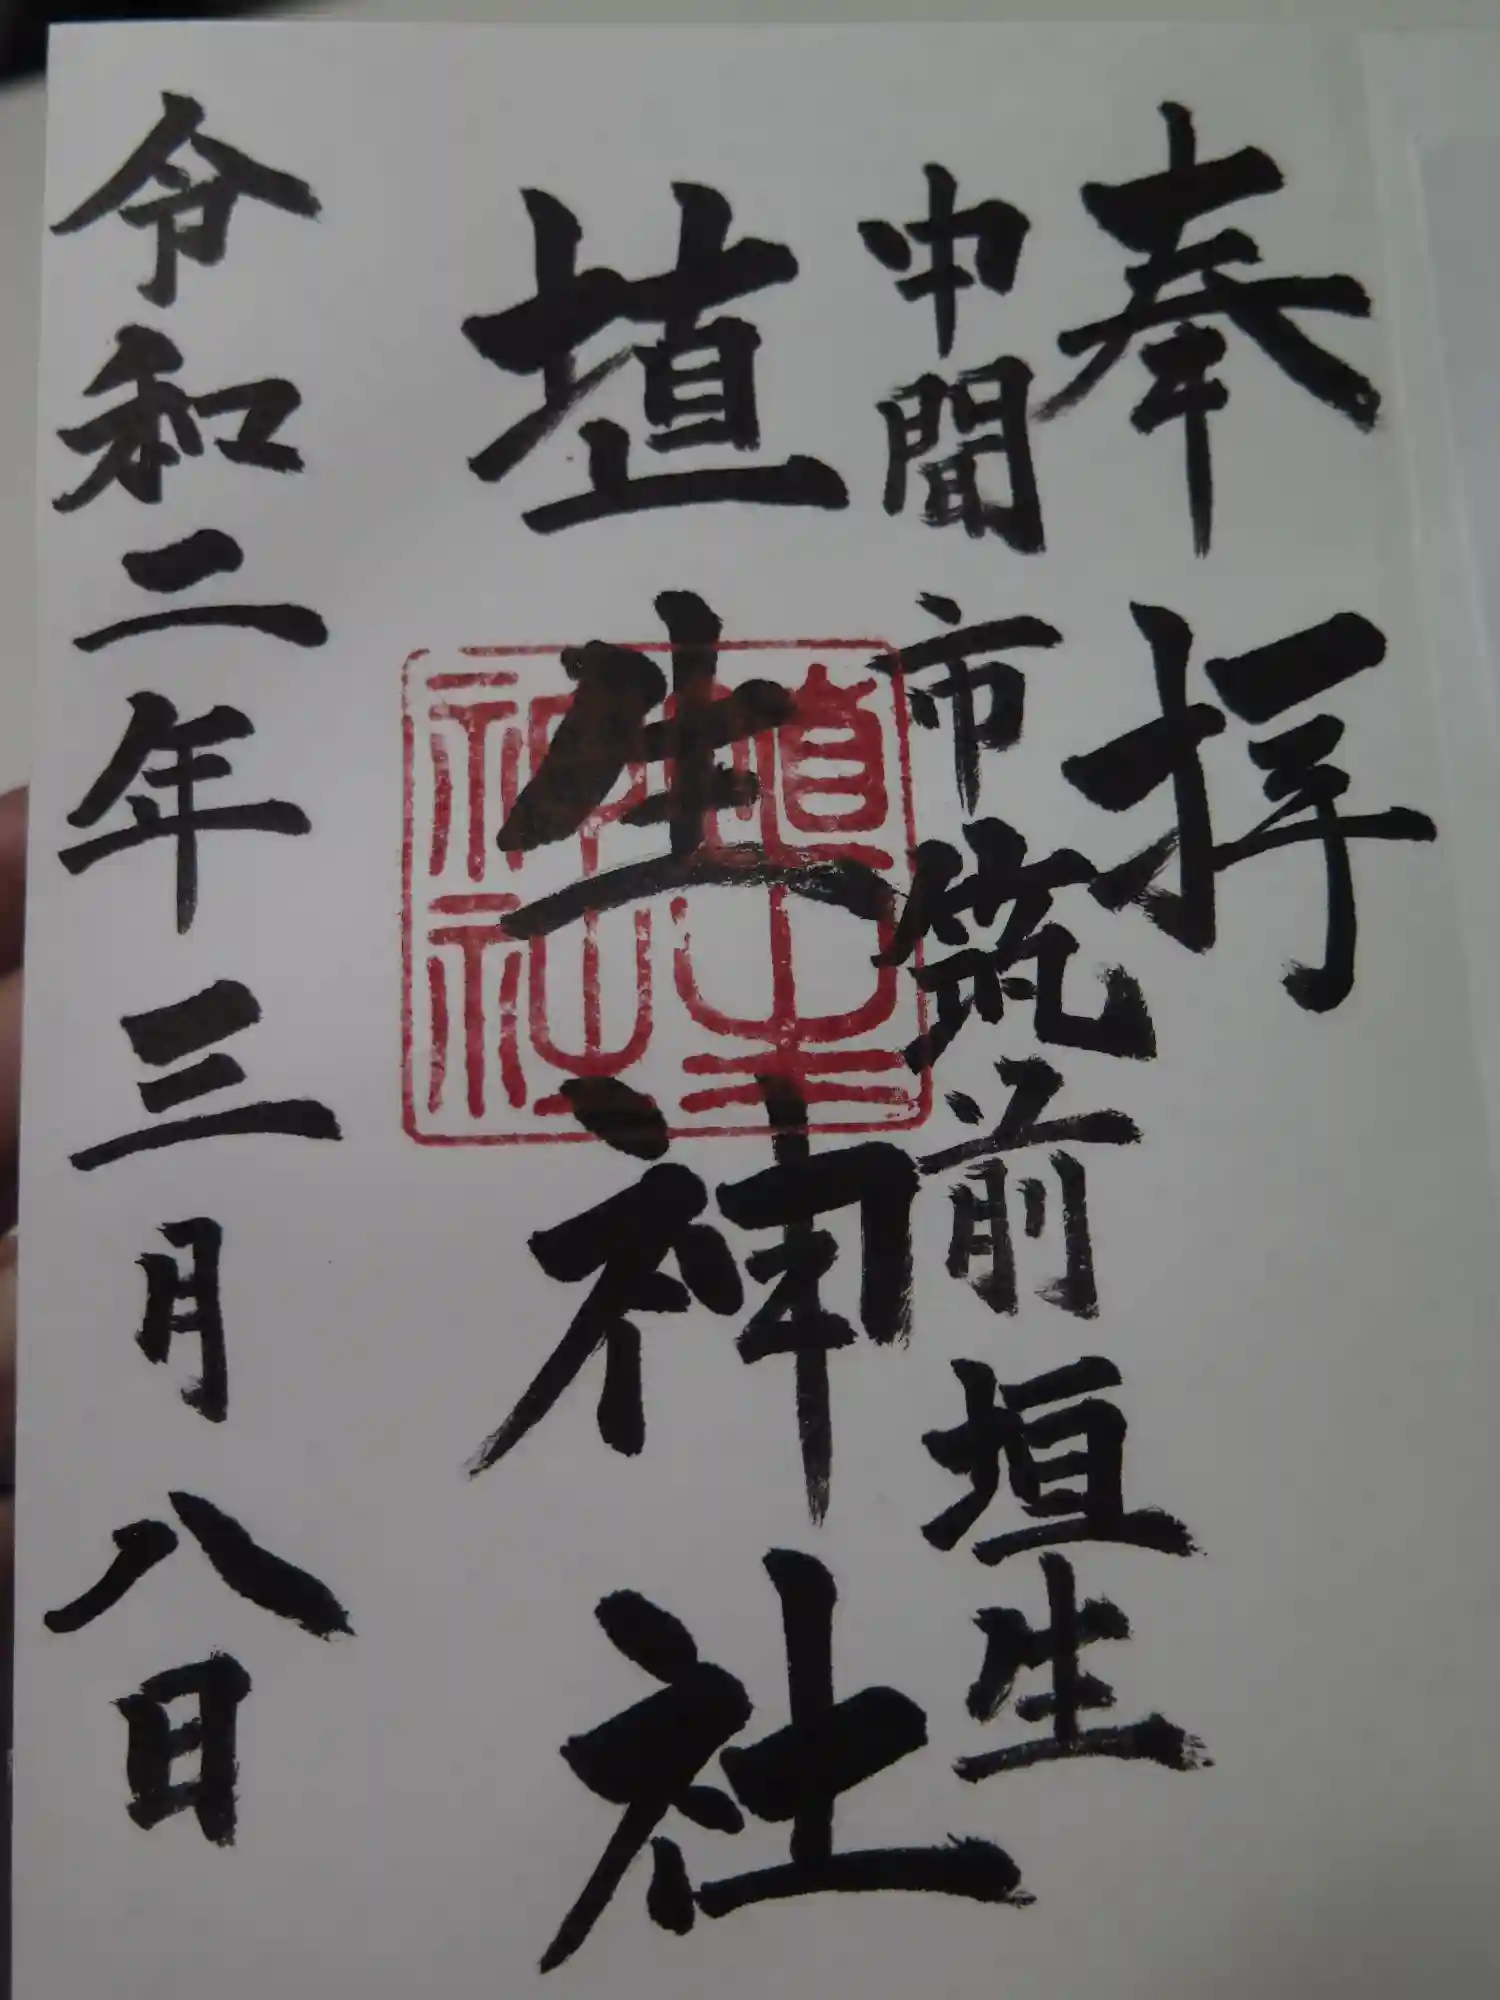 奉拝
中間市筑前垣生
埴生神社
埴生
神社
令和二年三月八日